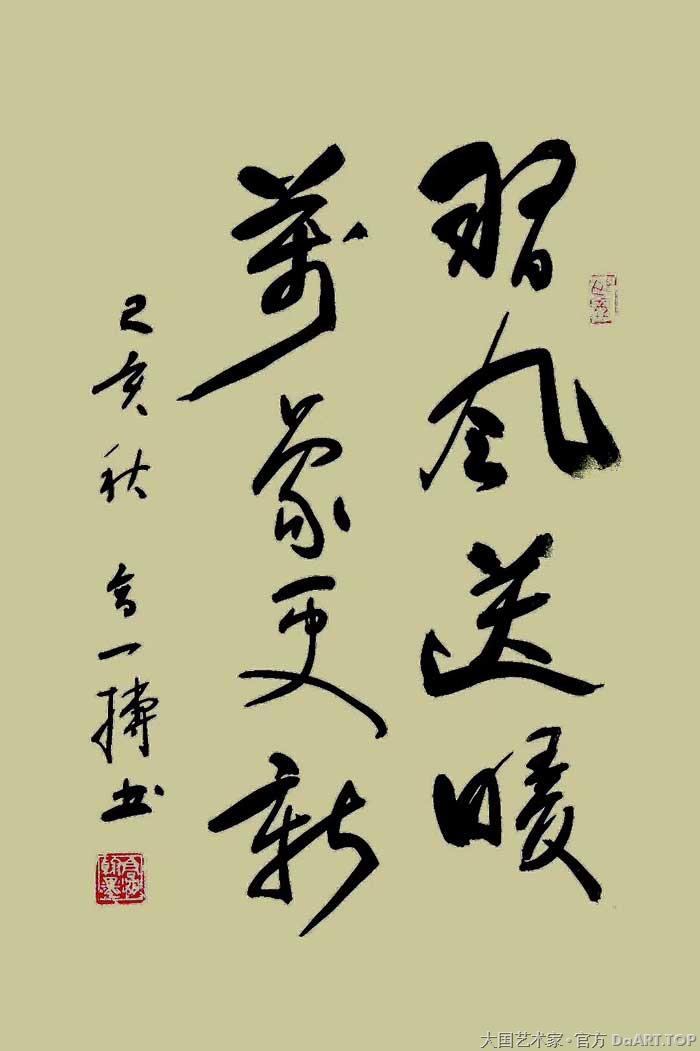 習风送暖
萬象更新
己亥秋 高一搏书
大国艺术家·官方 DaART.TOP